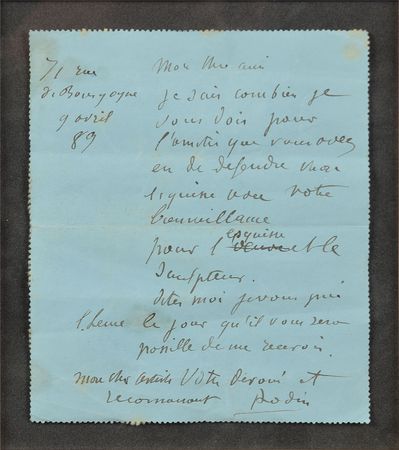 71 rue
de Bourgogne
9 avril
89
Mon cher ami
je sais combien je
vous dois pour
l'amitié que vous avez
eu de défendre mon
esquisse votre
bienveillance
pour l'esquisse et le
sculpteur.
dites moi je vous prie
le jour qu'il vous sera
possible de me recevoir.
mon cher Votre dévoué et
reconnaissant Rodin